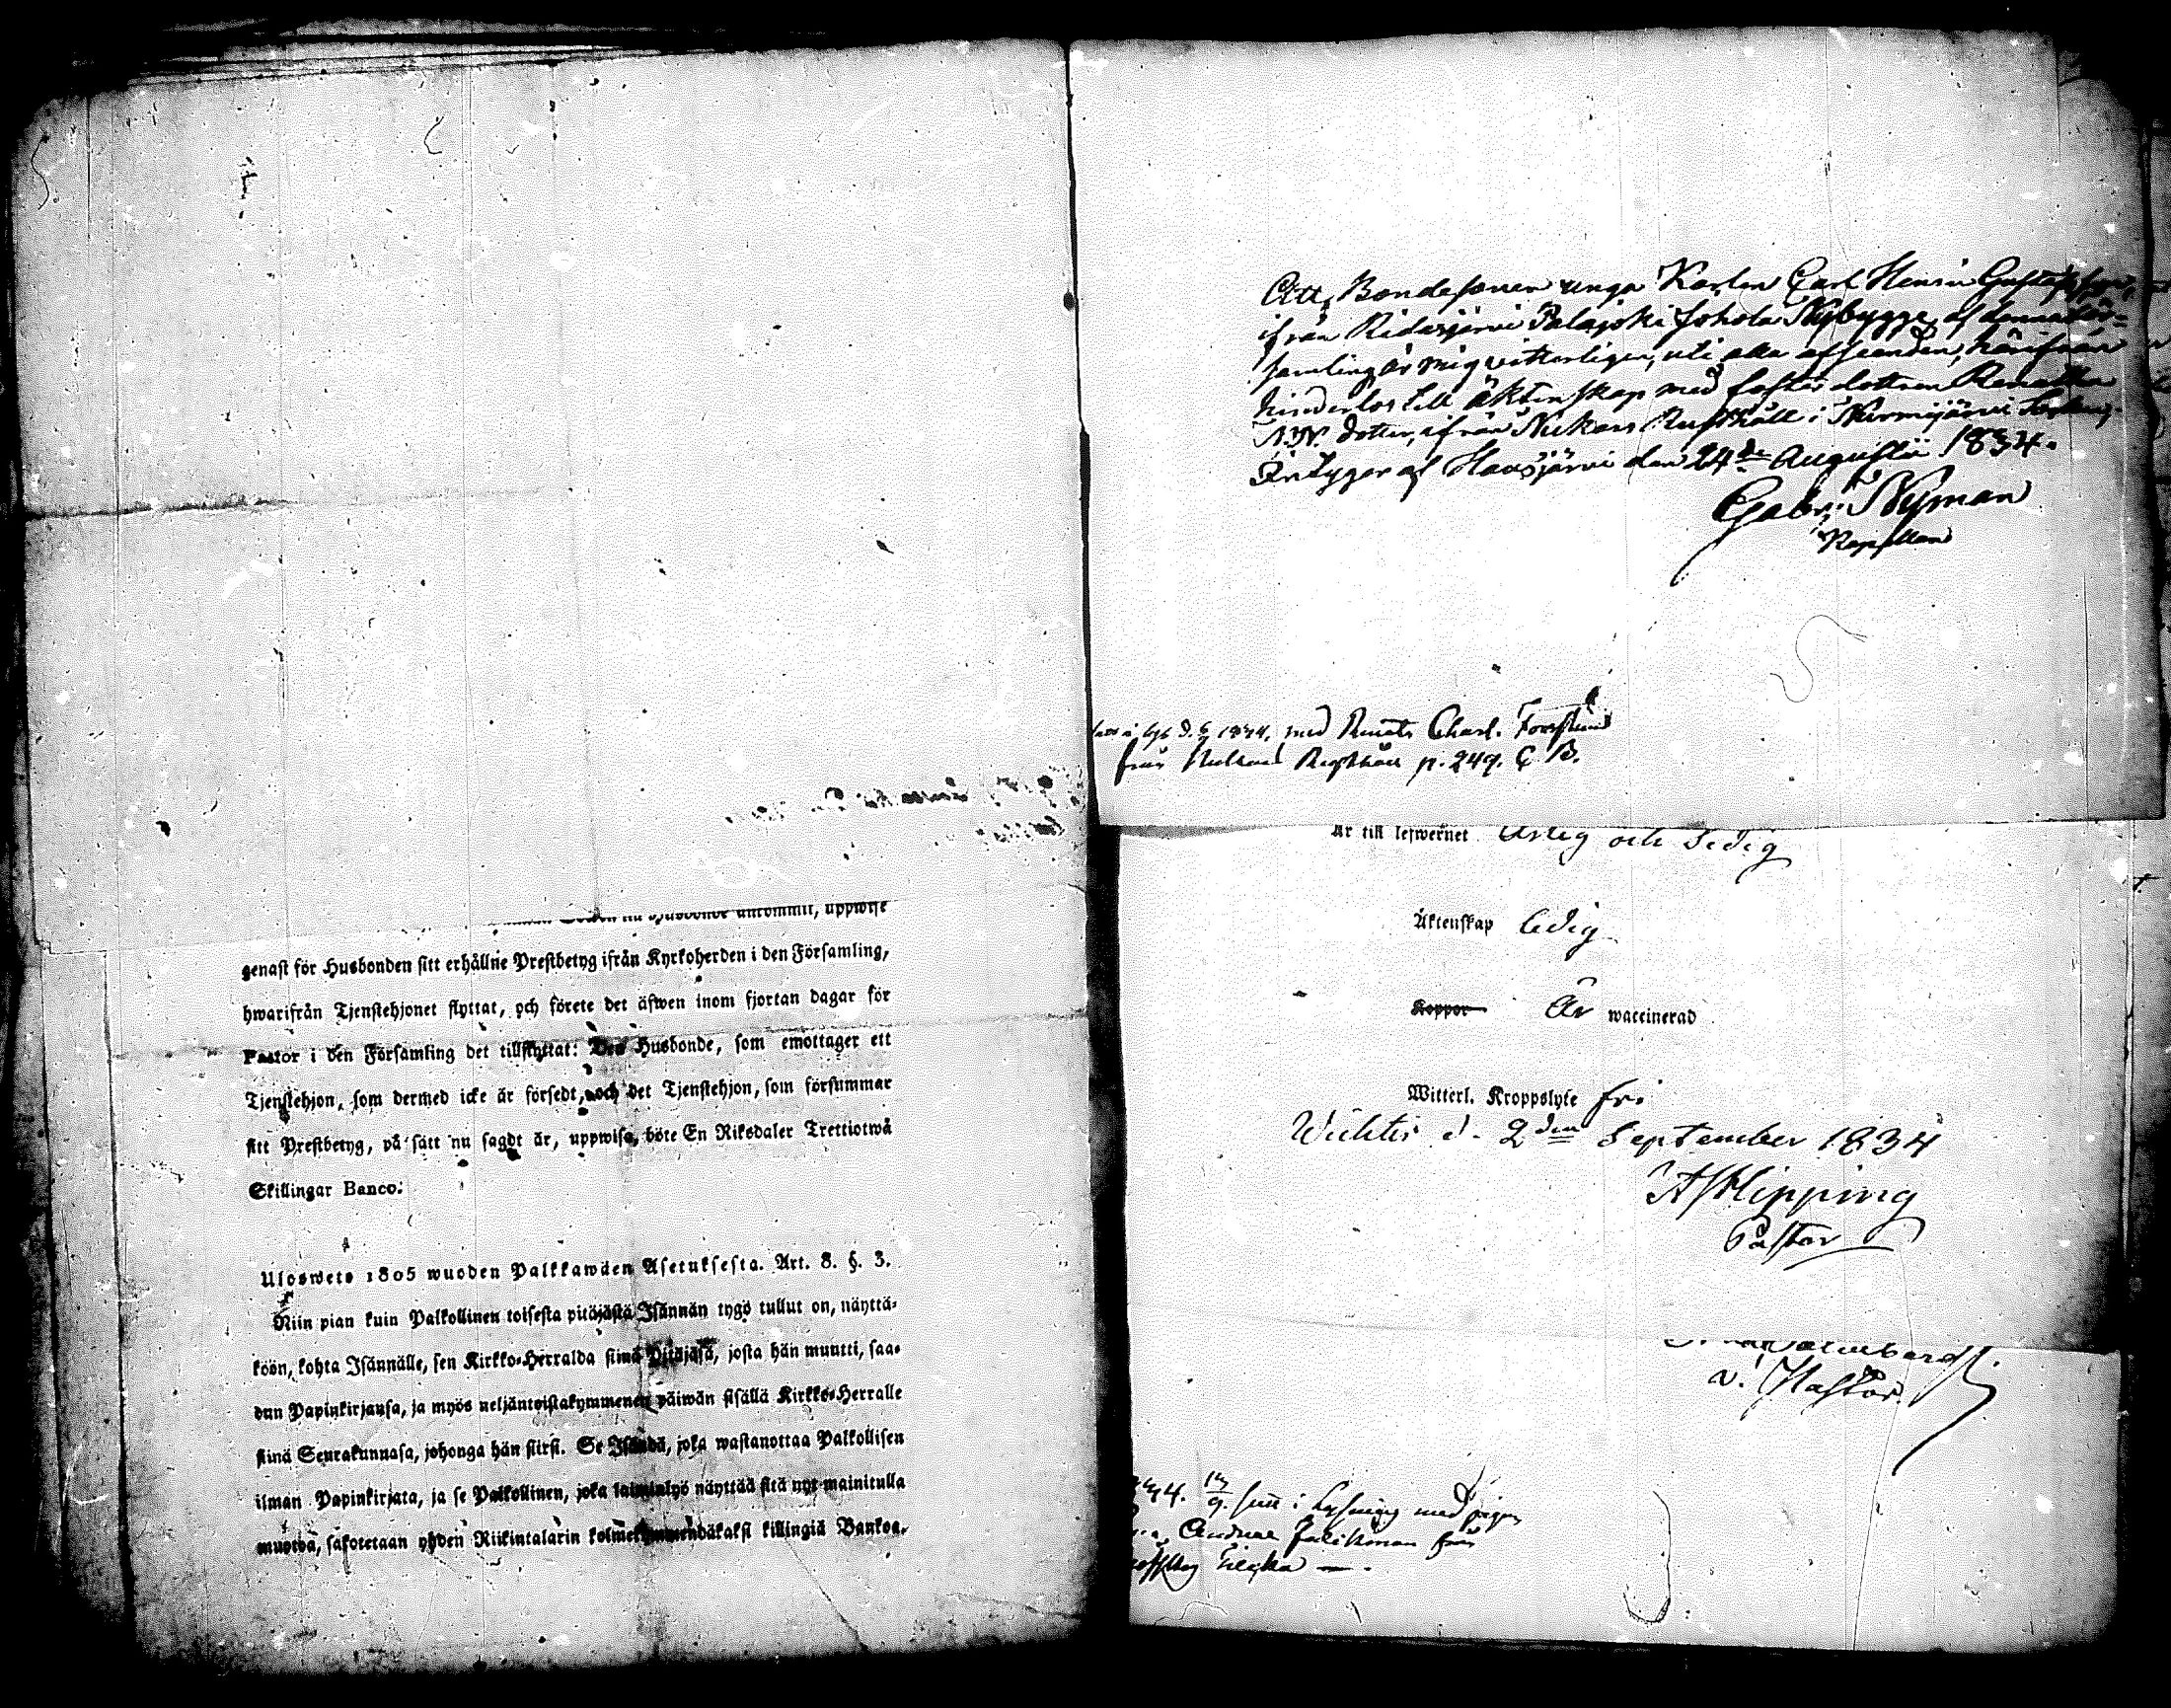 genast för Husbonden sitt erhållne Prestbetyg ifrån Kyrkoherden i den Församling,
hwarifrån Tjenstehjonet flyttat, och förete det äfwen inom fjortan dagar för
Pastor i den Församling det tillflyttat: Den Husbonde, som emottager ett
Tjenstehjon, som dermed icke är försedt, och det Tjenstehjon, som försummar
sitt Prestbetyg, på sätt nu sagdt är, uppwisa, böte En Riksdaler Trettiotwå
Skillingar Banco.
Uloswets 1805 wuoden Palkkawäen Asetuksesta. Art. 8. §. 3.
Niin pian kuin Palkollinen toisesta pitäjästä Isännän tygö tullut on, näyttä-
köön, kohta Isännälle, sen Kirkko-Herralda siinä Pitäjäsä, josta hän muutti, saa-
dun Papinkirjansa, ja myös neljäntoistakymmenen päiwän sisällä Kirkko-Herralle
siinä Seurakunnasa, johonga hän siirsi. Se Isändä, joka wastanottaa Palkollisen
ilman Papinkirjata, ja se Palkollinen, joka laiminlyö näyttää sitä nyt mainitulla
muotoa, sakotetaan yhden Riikintalarin kolmekymmendäkaksi killingiä Bankoa.
Att Bondesonen unga Karlen Carl Henric Gustafsson,
ifrån Ridasjärvi Palajoki Nybygge af denna för=
samling är mig vitterligen, uti alla afseenden, härifrån
hinderlös till äktenskap med fosterdottren Renatha
N.N. dotter, ifrån Nukars Rusthåll i Nurmijärvi
Intygar af Hausjärvi den 24de Augusti 1834.
Gabr. Nyman
Kapellan
1834, med Renata Charl. Forslund
från Nukars Rusthåll p. 249. C. B.
Är till lefwernet ärlig och sedig
Äktenskap ledig
Koppor Är waccinerad
Witterl. Kroppslyte fri
Wichtis d. 2den September 1834
Hipping
Pastor
v. Pastor.
i Lysning med pigan
från